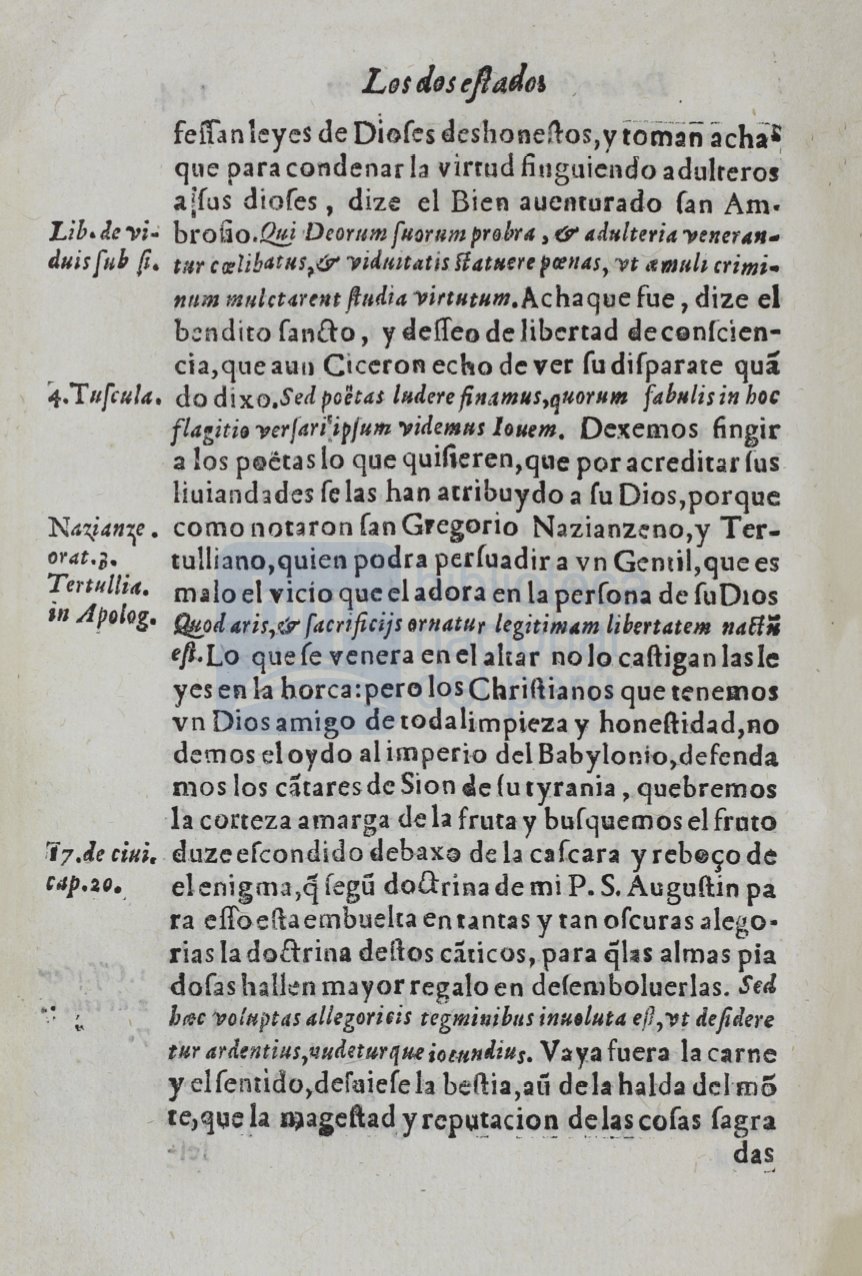 Los dos estados
feſſan leyes de Dioſes deshoneſtos, y toman acha
que para condenar la virtud finguiendo adulteros
a ſus dioſes, dize el Bien auenturado ſan Am-
Lib. de vi-
duis ſub fi.
broſio. Qui Deorum ſuorum probra, & adulteria veneran-
tur cœlibatus, & viduitatis ſtatuere pœnas, vt æmuli crimi-
num mulctarent ſtudia virtutum. Achaque fue, dize el
bendito ſancto, y deſſeo de libertad de conſcien-
cia, que aun Ciceron echo de ver ſu diſparate quã
4. Tuſcula.
do dixo. Sed poëtas ludere ſinamus, quorum fabulis in hoc
flagitio verſari ipſum videmus Iouem. Dexemos fingir
a los poétas lo que quiſieren, que por acreditar ſus
liuiandades ſe las han atribuydo a ſu Dios, porque
Nazianze.
orat. 3.
Tertullia.
in Apolog.
como notaron ſan Gregorio Nazianzeno, y Ter-
tulliano, quien podra perſuadir a vn Gentil, que es
malo el vicio que el adora en la perſona de ſu Dios
Quod aris, & ſacrificijs ornatur legitimam libertatem nactũ
eſt. Lo que ſe venera en el altar no lo caſtigan las le
yes en la horca: pero los Chriſtianos que tenemos
vn Dios amigo de toda limpieza y honeſtidad, no
demos el oydo al imperio del Babylonio, defenda
mos los cãtares de Sion de ſu tyrania, quebremos
la corteza amarga de la fruta y buſquemos el fruto
17. de ciui.
cap. 20.
duze eſcondido debaxo de la caſcara y reboço de
el enigma, q̃ ſegũ doctrina de mi P. S. Auguſtin pa
ra eſſo eſta embuelta en tantas y tan oſcuras alego-
rias la doctrina deſtos cãticos, para q̃ las almas pia
doſas hallen mayor regalo en deſemboluerlas. Sed
hæc voluptas allegoricis tegminibus inuoluta eſt, vt deſidere
tur ardentius, nudeturque iocundius. Vaya fuera la carne
y el ſentido, deſuieſe la beſtia, aũ de la halda del mõ
te, que la mageſtad y reputacion de las coſas ſagra
das